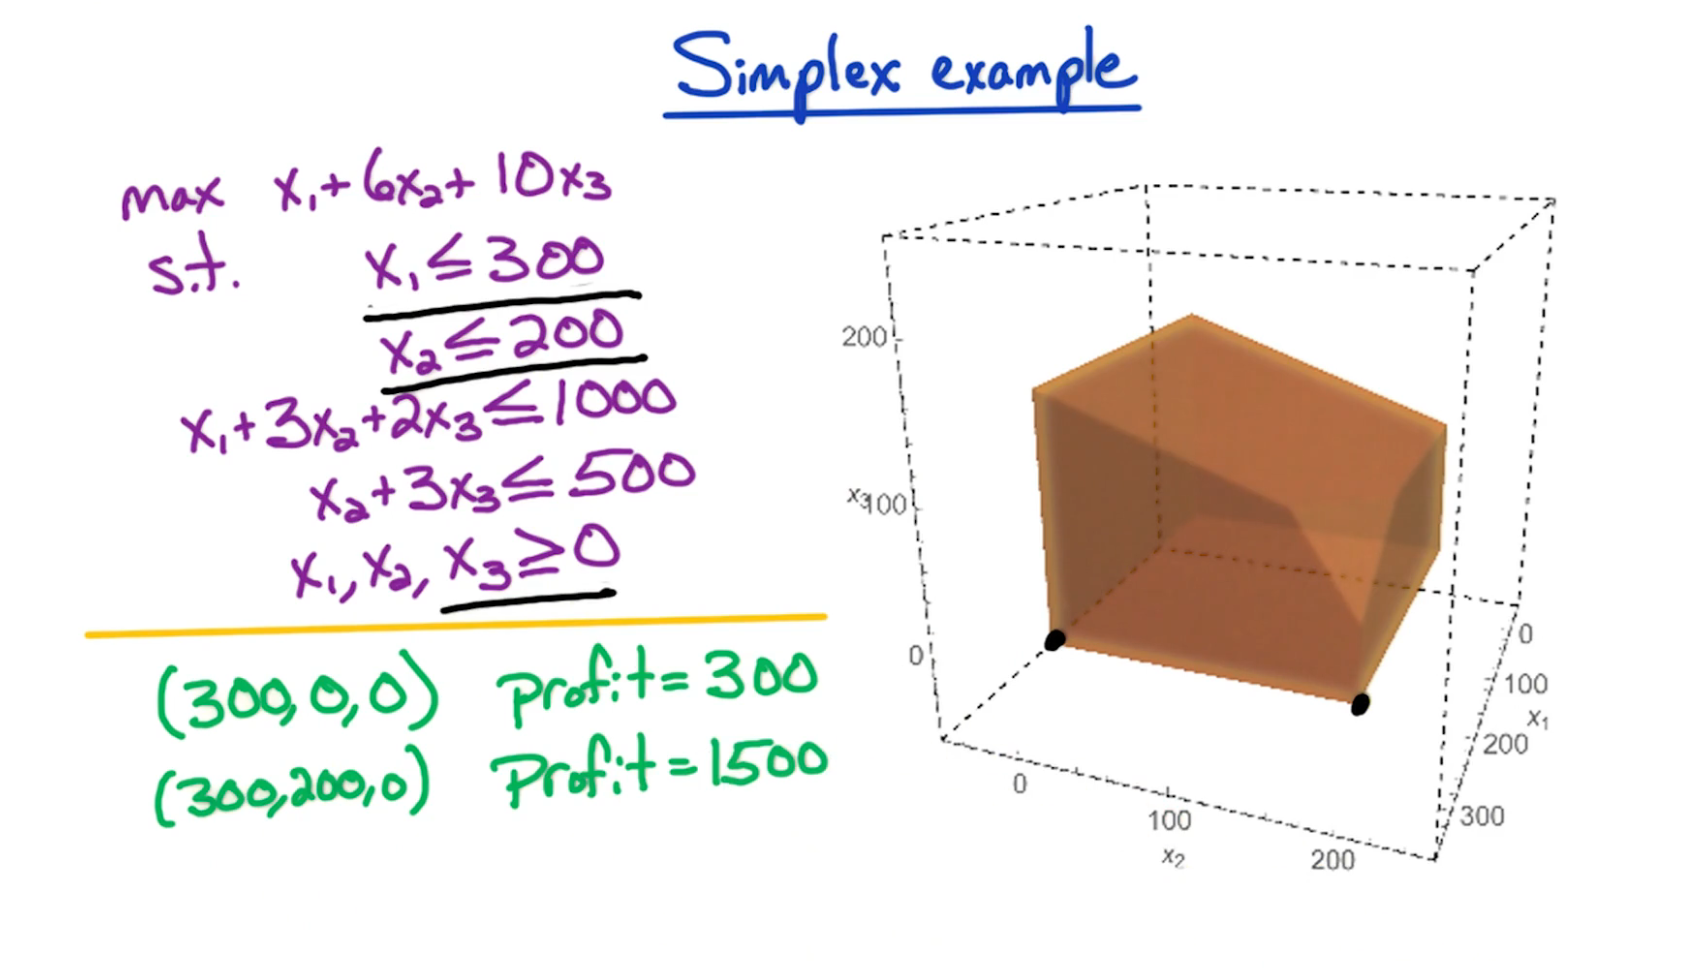 Simplex example
max x₁+6x₂+10x₃
s.t. x₁≤300
x₂≤200
x₁+3x₂+2x₃≤1000
x₂+3x₃≤500
x₁,x₂,x₃≥0
(300,0,0) profit=300
(300,200,0) Profit=1500
200
x₃
100
0
0
100
x₂
200
0
100
x₁
200
300